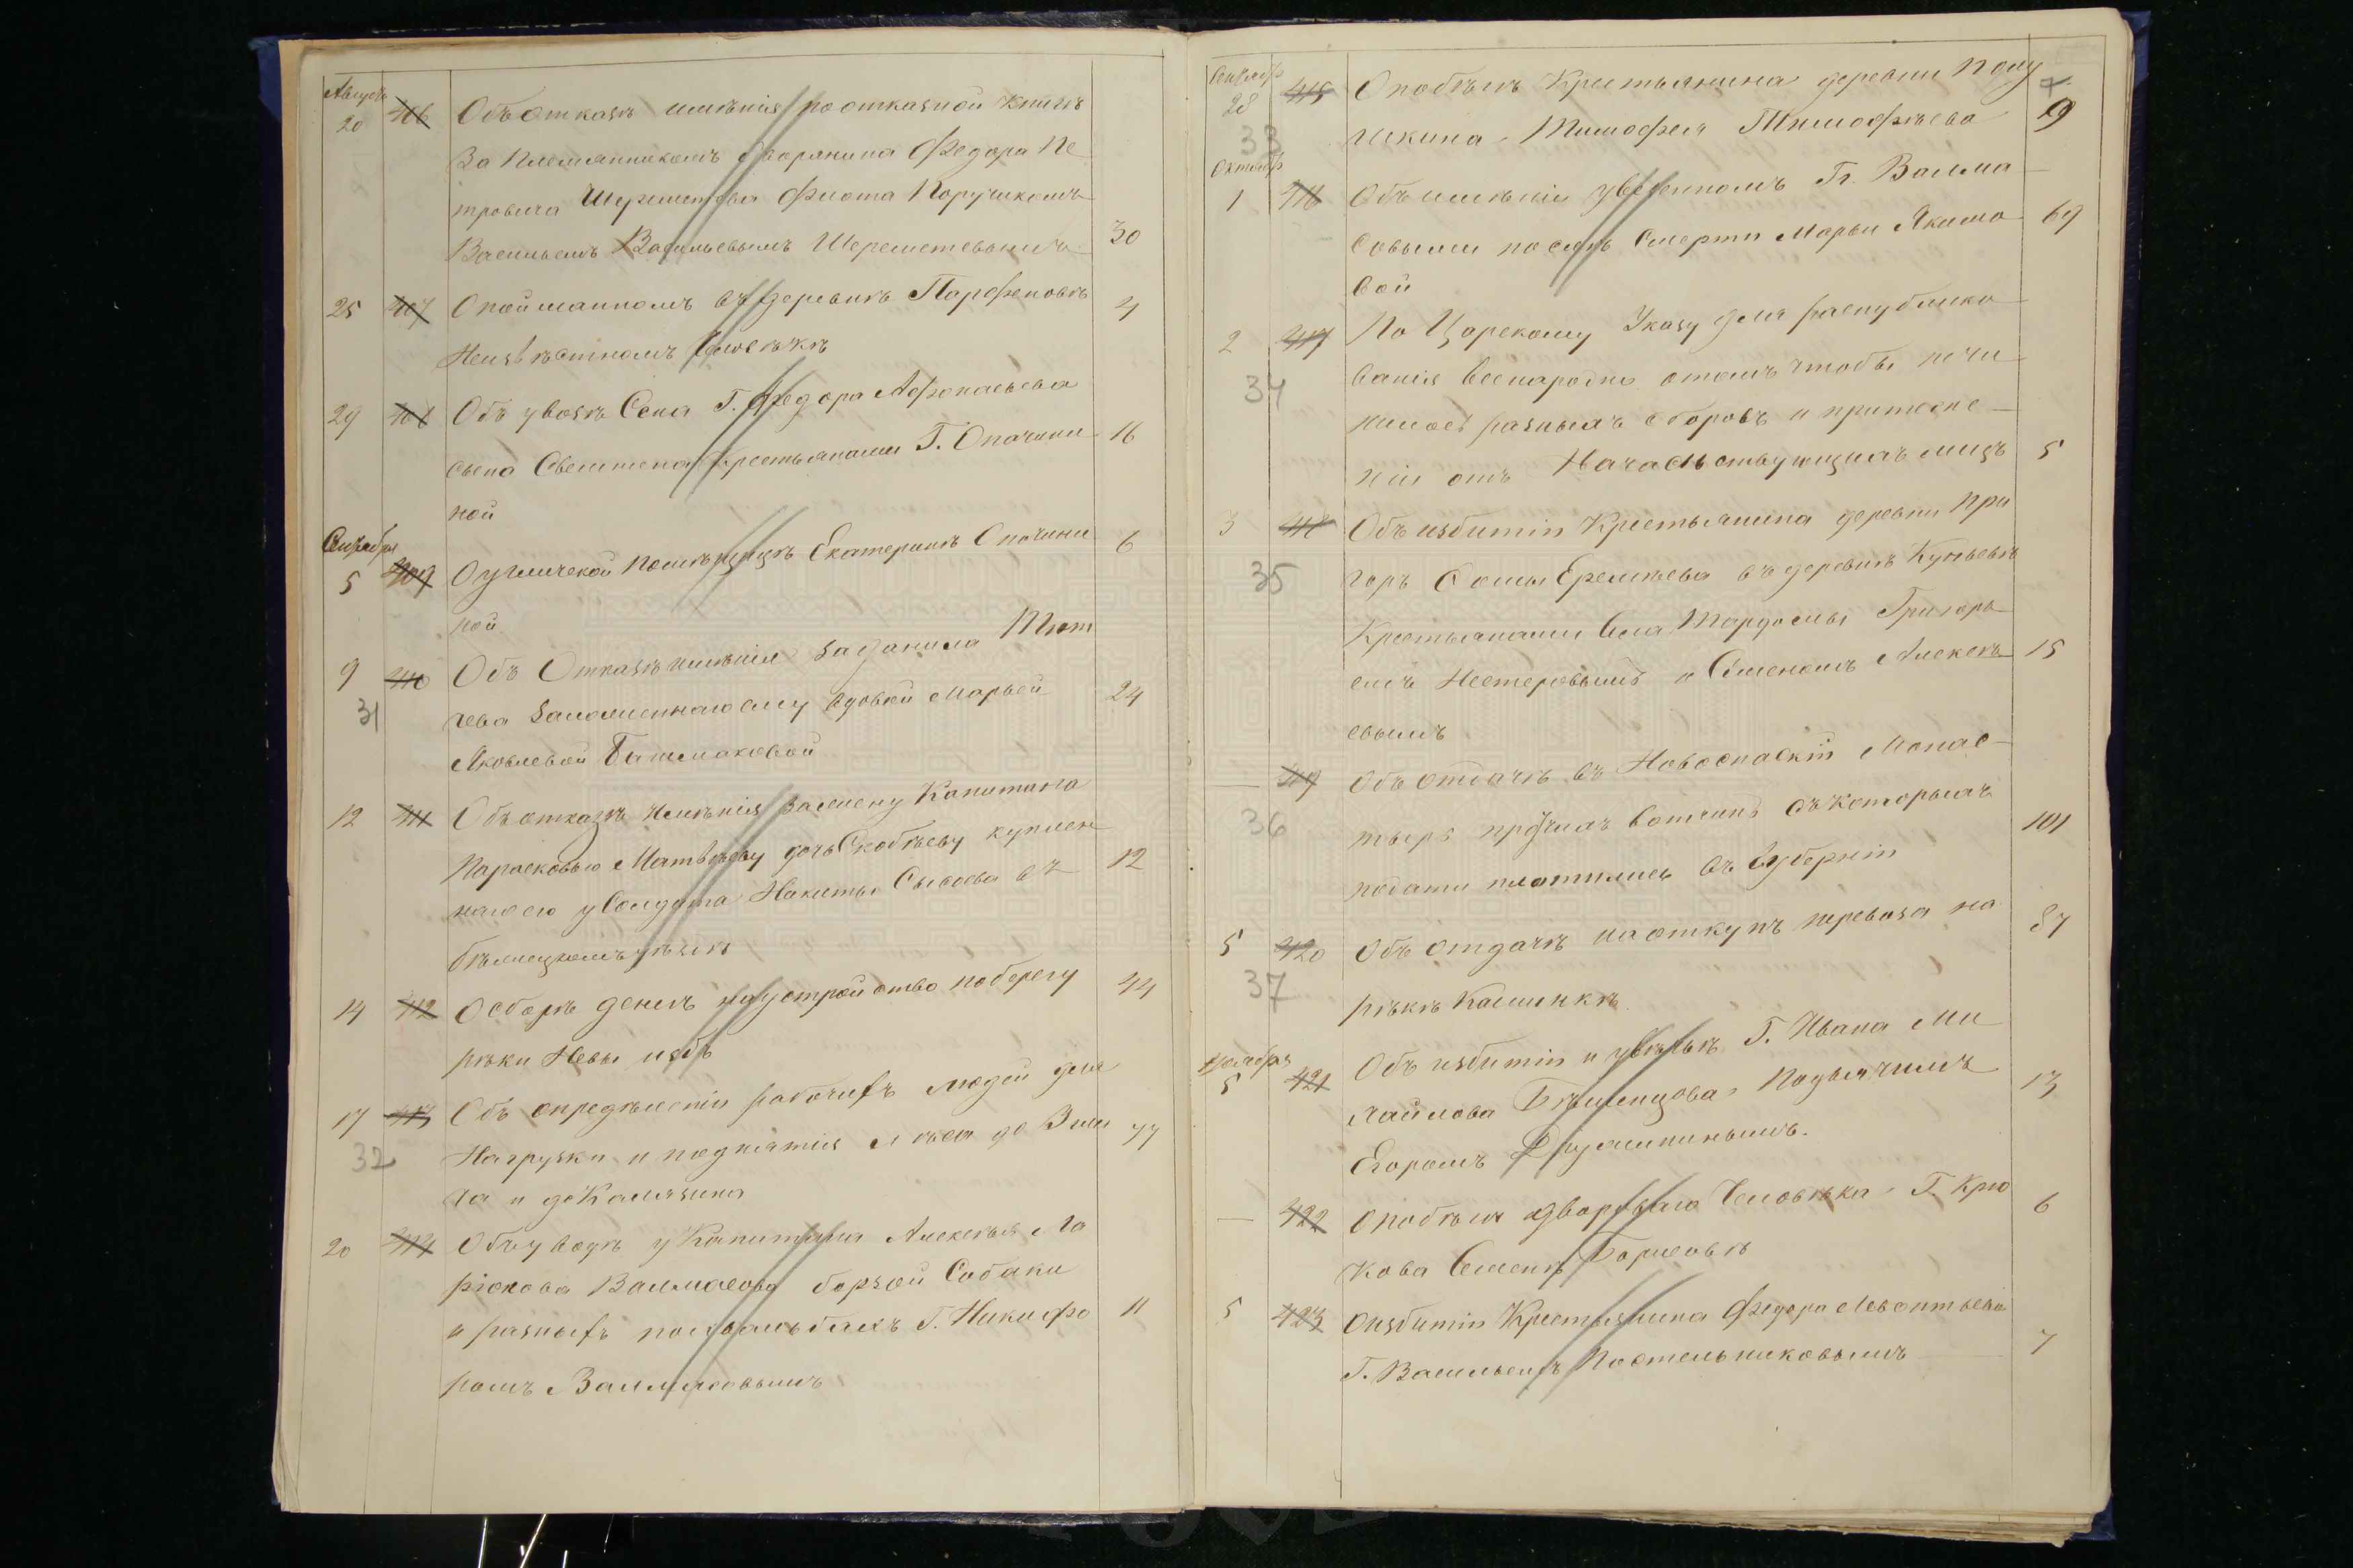 Августа
20 406 Объ отказѣ имѣнія по отказной книгѣ
За Племянникомъ дворянина Федора Пе
тровича Шереметева Флота Поручикомъ
Васильемъ Васильевымъ Шереметевымъ 30
25 407 О пойманномъ въ деревнѣ Парфеновѣ 4
Неизвѣстномъ Человѣкѣ
29 408 Объ увозѣ Сена Г. Федора Афонасьева
сына крестьянами Г. Опочини 16
ной
Сентября
5 409 О углической помѣщицѣ Екатеринѣ Опочини 6
ной
9 410 Объ Отказѣ имѣнія за Данила Тют
31 чева заложеннаго ему вдовой Марьей 24
Яковлевой Башмаковой
12 411 Объ отказѣ имѣнія за жену Капитана
Парасковью Матвѣеву дочь Скобѣеву куплен
наго ею у Солдата Никиты Сысоева въ 12
бѣжецкомъ уѣздѣ
14 412 О сборѣ денегъ на устройство по берегу 44
рѣки Невы избъ
17 413 Объ опредѣленіи рабочихъ людей для
32 Нагрузки и поднятія лѣса до 77
и до Калязина
20 414 Объ уводѣ у Капитана Алексѣя Ла
ріонова Валмасова борзой Собаки
и разныхъ г. Никифо 11
ромъ Валмасовымъ
Сентябр 7
28 415 О побѣгѣ Крестьянина деревни Пону 9
33 шкина Тимофея Тимофѣева
Октябр
1 416 Объ имѣніи увезенномъ Гг. Валма
совыми послѣ Смерти Марьи Якимо 69
вой
2 417 По Царскому Указу для распублико
34 ванія всенародно о томъ чтобы нечи
нилось разныхъ сборовъ и притесне
ніи отъ Начальствующихъ лицъ 5
3 418 Объ избитіи Крестьянина деревни При
35 горъ Фомы Еремѣева въ деревнѣ
Крестьянами Села Григорь
емъ Нестеровымъ и Семеномъ Алексѣ 15
евымъ
— 419 Объ отдачѣ въ Новоспаскій Монас
36 тырь прочихъ вотчинъ съ которыхъ
подати платились въ Губерніи 101
5 420 Объ отдачѣ на откупъ перевоза на 87
37 рѣкѣ Кашинкѣ
Ноября
5 421 Объ избитіи и увѣчьѣ Г. Ивана Ми
хайлова Бѣшенцова Подьячимъ 13
Егоромъ
— 422 О побѣгѣ дворового Человѣка Г. Крю 6
кова Семенѣ Борисовѣ
5 423 О избитіи Крестьянина Федора Левонтьева
Г. Васильемъ Постельниковымъ 7